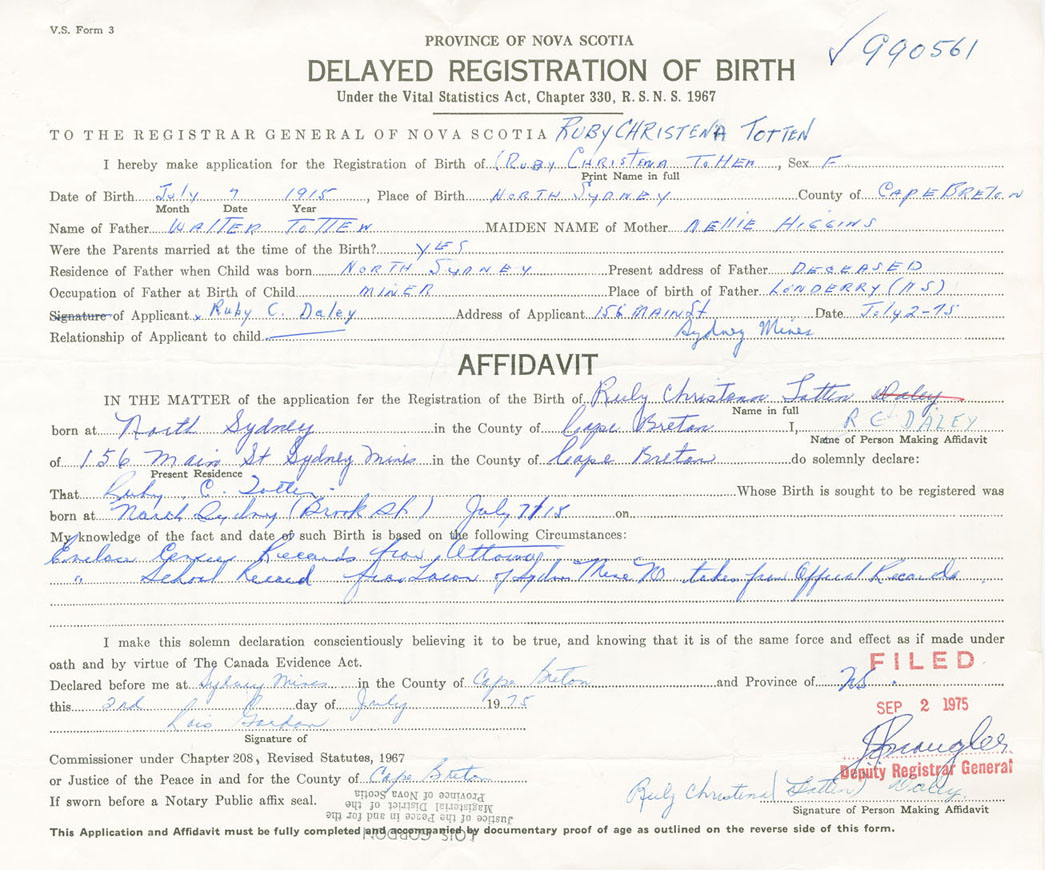 V.S. Form 3
✓990561
PROVINCE OF NOVA SCOTIA
DELAYED REGISTRATION OF BIRTH
Under the Vital Statistics Act, Chapter 330, R. S. N. S. 1967
TO THE REGISTRAR GENERAL OF NOVA SCOTIA RUBY CHRISTENA TOTTEN
I hereby make application for the Registration of Birth of (RUBY CHRISTENA TOTTEN, Sex F
Print Name in full
Date of Birth July 7 1915, Place of Birth NORTH SYDNEY County of CAPE BRETON
Month Date Year
Name of Father WALTER TOTTEN MAIDEN NAME of Mother NELLIE HIGGINS
Were the Parents married at the time of the Birth? YES
Residence of Father when Child was born NORTH SYDNEY Present address of Father DECEASED
Occupation of Father at Birth of Child MINER Place of birth of Father LONDERRY (NS)
Signature of Applicant x Ruby C. Daley Address of Applicant 156 MAIN St Date July 2-75
Sydney Mines
Relationship of Applicant to child
AFFIDAVIT
IN THE MATTER of the application fer the Registration of the Birth of Ruby Christena Totten Daley
Name in full
born at North Sydney in the County of Cape Breton I, R C DALEY
Name of Person Making Affidavit
of 156 Main St Sydney Mines in the County of Cape Breton do solemnly declare:
Present Residence
That Ruby C. Totten Whose Birth is sought to be registered was
born at North Sydney (Brook St.) July 7/15 on
My knowledge of the fact and date of such Birth is based on the following Circumstances:
Records from
" School Record from Town of taken from Official Records
I make this solemn declaration conscientiously believing it to be true, and knowing that it is of the same force and effect as if made under
oath and by virtue of The Canada Evidence Act.
FILED
Declared before me at Sydney Mines in the County of Cape Breton and Province of NS.
this 2nd day of July 1975
SEP 2 1975
Lois Gordon
Signature of
Commissioner under Chapter 208, Revised Statutes, 1967
Deputy Registrar General
or Justice of the Peace in and for the County of Cape Breton
Ruby Christena (Totten) Daley
If sworn before a Notary Public affix seal.
Signature of Person Making Affidavit
LOIS GORDON
Justice of the Peace in and for the
Magisterial District of the
Province of Nova Scotia
This Application and Affidavit must be fully completed and accompanied by documentary proof of age as outlined on the reverse side of this form.